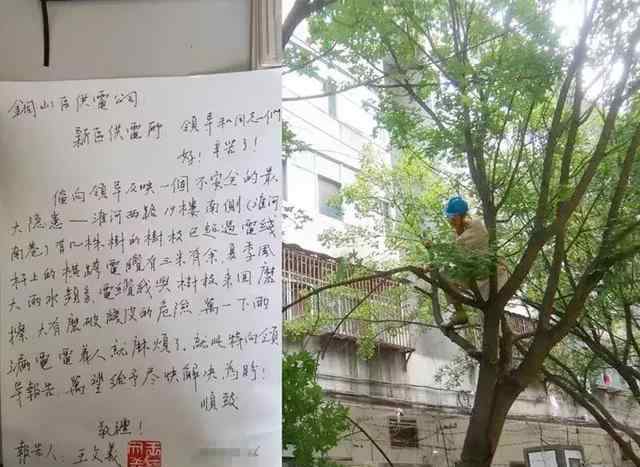 銅山区供電公司
新区供電所 領导和同志们
好!辛苦了!
僅向領导反映一個不安全的最
大隐患——淮河西路19樓南側(淮河
南巷)有几株樹的樹枝已超過電綫
杆上的横擔電纜有三米有余.夏季風
大雨水頻繁電纜綫與樹枝来回磨
擦大有磨破綫皮的危險.萬一下雨
漏電電着人就麻煩了.就此特向領
导報告.萬望给予尽快解决為盼!
順致
敬禮!
報告人:王文義